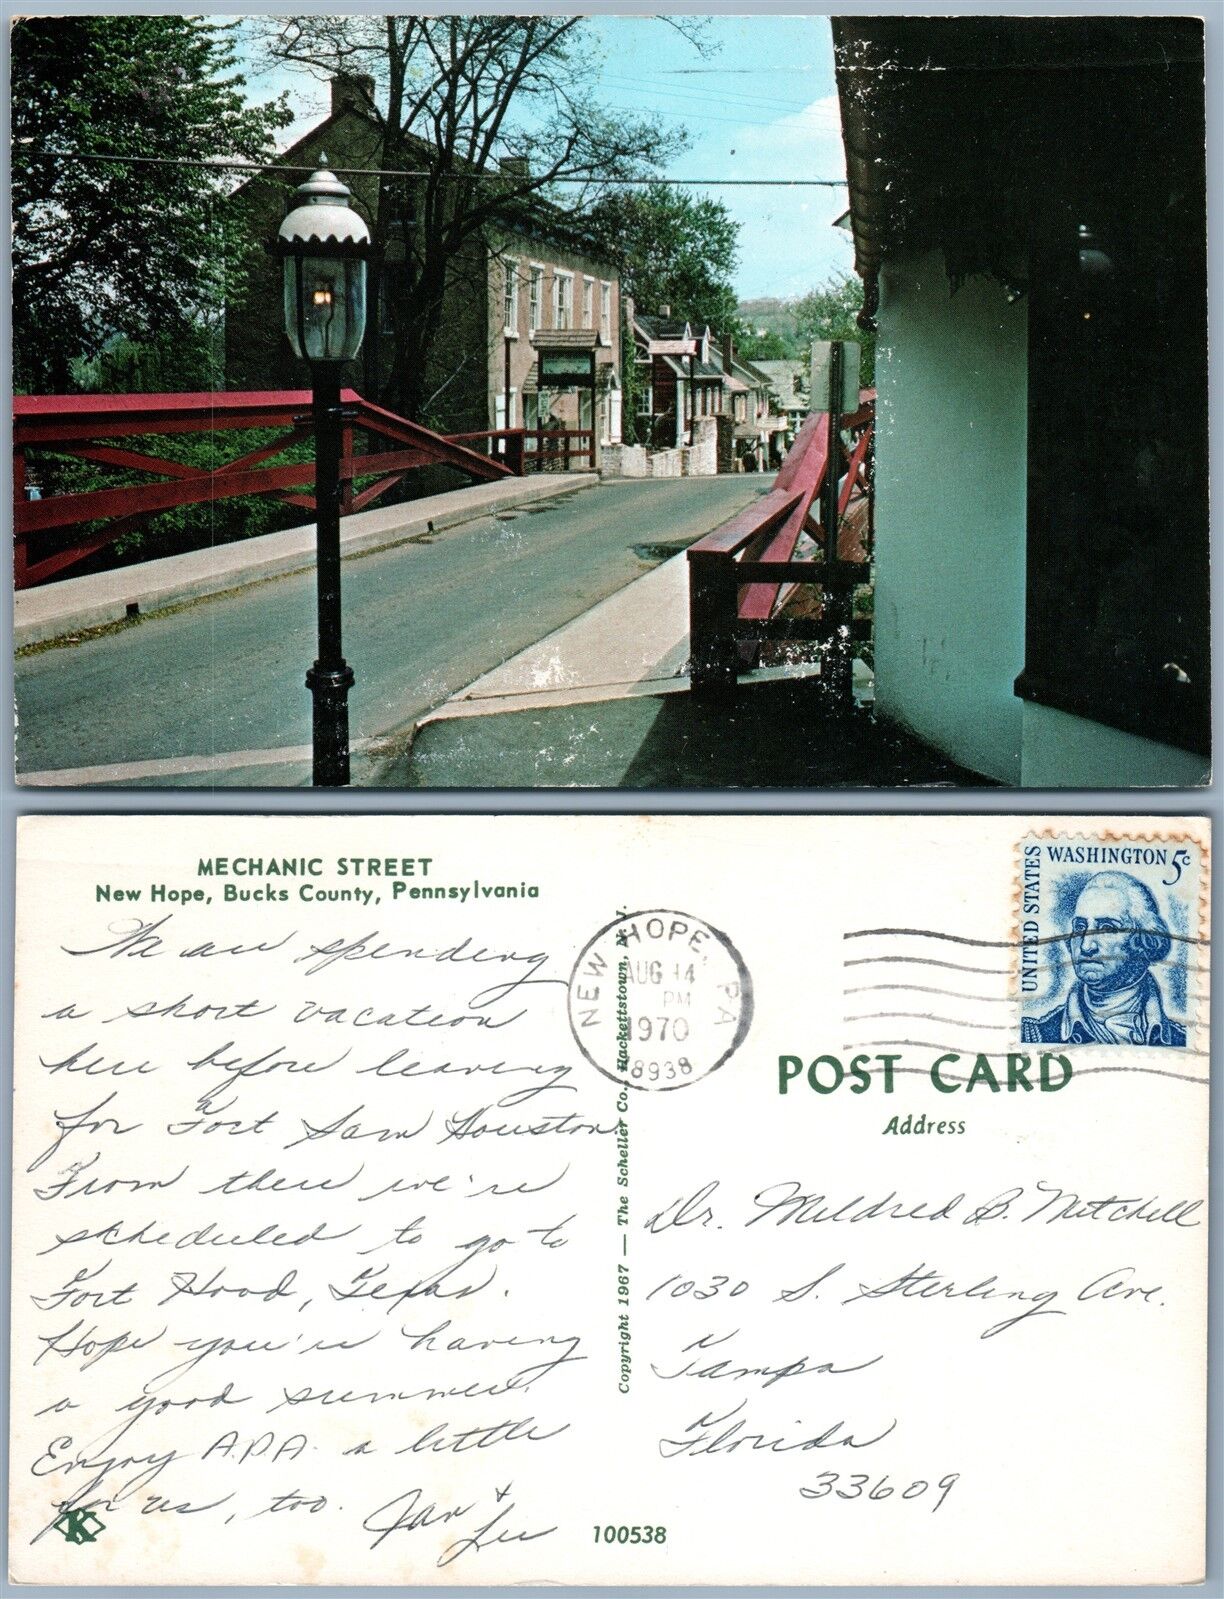 MECHANIC STREET
New Hope, Bucks County, Pennsylvania
We are spending
a short vacation
here before leaving
for Fort Sam Houston.
From there we're
scheduled to go to
Fort Hood, Texas.
Hope you're having
a good summer.
Enjoy A.P.A. a little
for us, too. Jan +
Lee
K
100538
Copyright 1967 — The Scheller Co., Hackettstown, N. J.
NEW HOPE, PA
AUG 14
PM
1970
18938
UNITED STATES
WASHINGTON 5c
POST CARD
Address
Dr. Mildred B. Mitchell
1030 S. Sterling Ave.
Tampa
Florida
33609